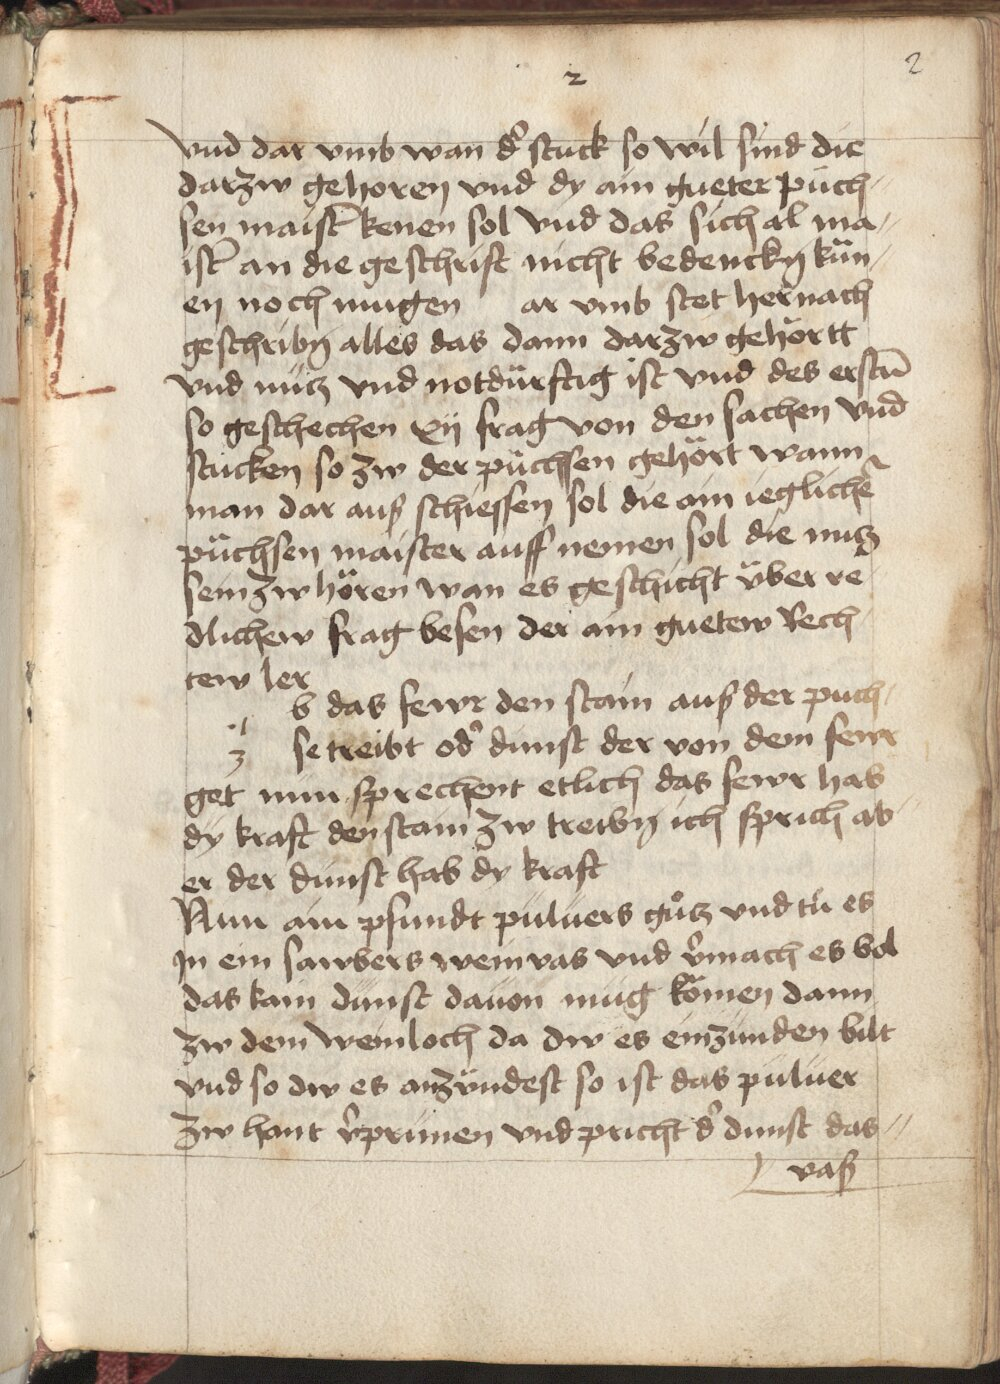 2
2
vnd dar vmb wan d̉ stuck so wil sind die
darzw gehoren vnd dy ain gueter püch-
sen maist̉ kenen sol vnd das sich al ma-
ist̉ an die geschrift nicht bedenckn̄ kün-
en noch mugen ar vmb stet hernach
geschribn̄ alles das dann darzw gehörtt
vnd nütz vnd notdürftig ist vnd des erstn̄
so geschechen xij frag von den sachen vnd
stucken so zw der püchsen gehört wann
man dar auß schiessen sol die ain ieglicher
püchsen maister auff nemen sol die nutz
sein zw hören wan es geschicht über re
dlichew frag besen der ain guetew Rech-
tew ler
b das fewr den stain auß der puch-
se treibt od̉ dunst der von dem fewr
get nun sprechent etlich das fewr hab
dy kraft den stain zw treibn̄ ich sprich ab-
er der dunst hab dy kraft
Nun ain pfundt puluers gůtz vnd tů es
In ein sawbers weinvas vnd v̉mach es bol
das kain dunst dauon müg kömen dann
zw dem weinloch da dw es einzünden bilt
vnd so dw es anzündest so ist das puluer
zw hant v̉prünen vnd pricht d̉ dunst das
vaß